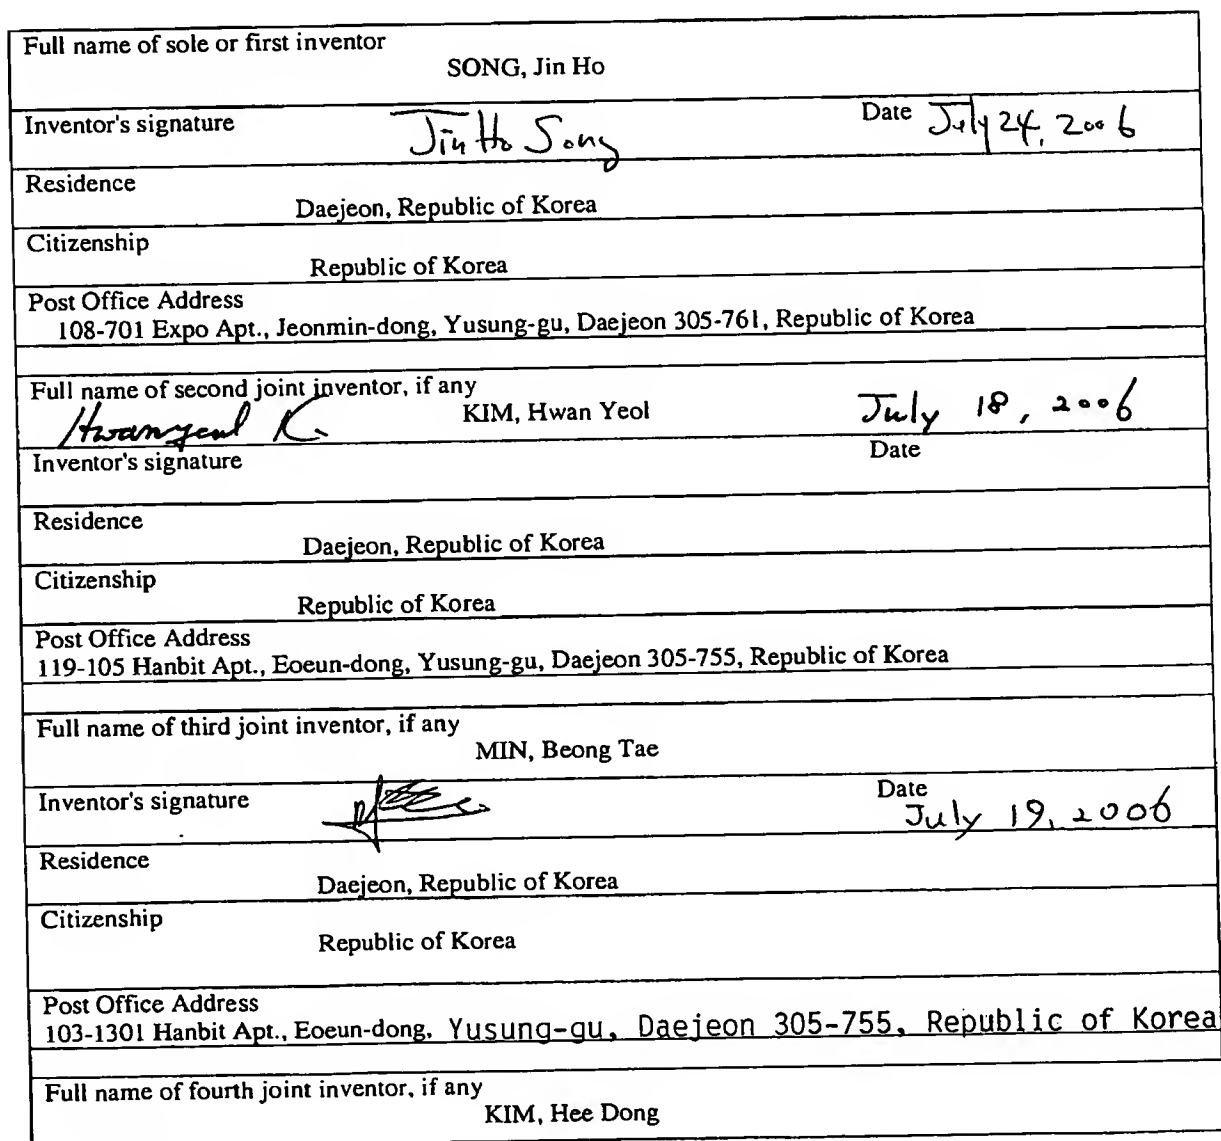 Full name of sole or first inventor
SONG, Jin Ho
Inventor's signature Jin Ho Song Date July 24, 2006
Residence
Daejeon, Republic of Korea
Citizenship
Republic of Korea
Post Office Address
108-701 Expo Apt., Jeonmin-dong, Yusung-gu, Daejeon 305-761, Republic of Korea
Full name of second joint inventor, if any
Hwanyeol K. KIM, Hwan Yeol July 18, 2006
Inventor's signature Date
Residence
Daejeon, Republic of Korea
Citizenship
Republic of Korea
Post Office Address
119-105 Hanbit Apt., Eoeun-dong, Yusung-gu, Daejeon 305-755, Republic of Korea
Full name of third joint inventor, if any
MIN, Beong Tae
Inventor's signature Date
July 19, 2006
Residence
Daejeon, Republic of Korea
Citizenship
Republic of Korea
Post Office Address
103-1301 Hanbit Apt., Eoeun-dong, Yusung-gu, Daejeon 305-755, Republic of Korea
Full name of fourth joint inventor, if any
KIM, Hee Dong